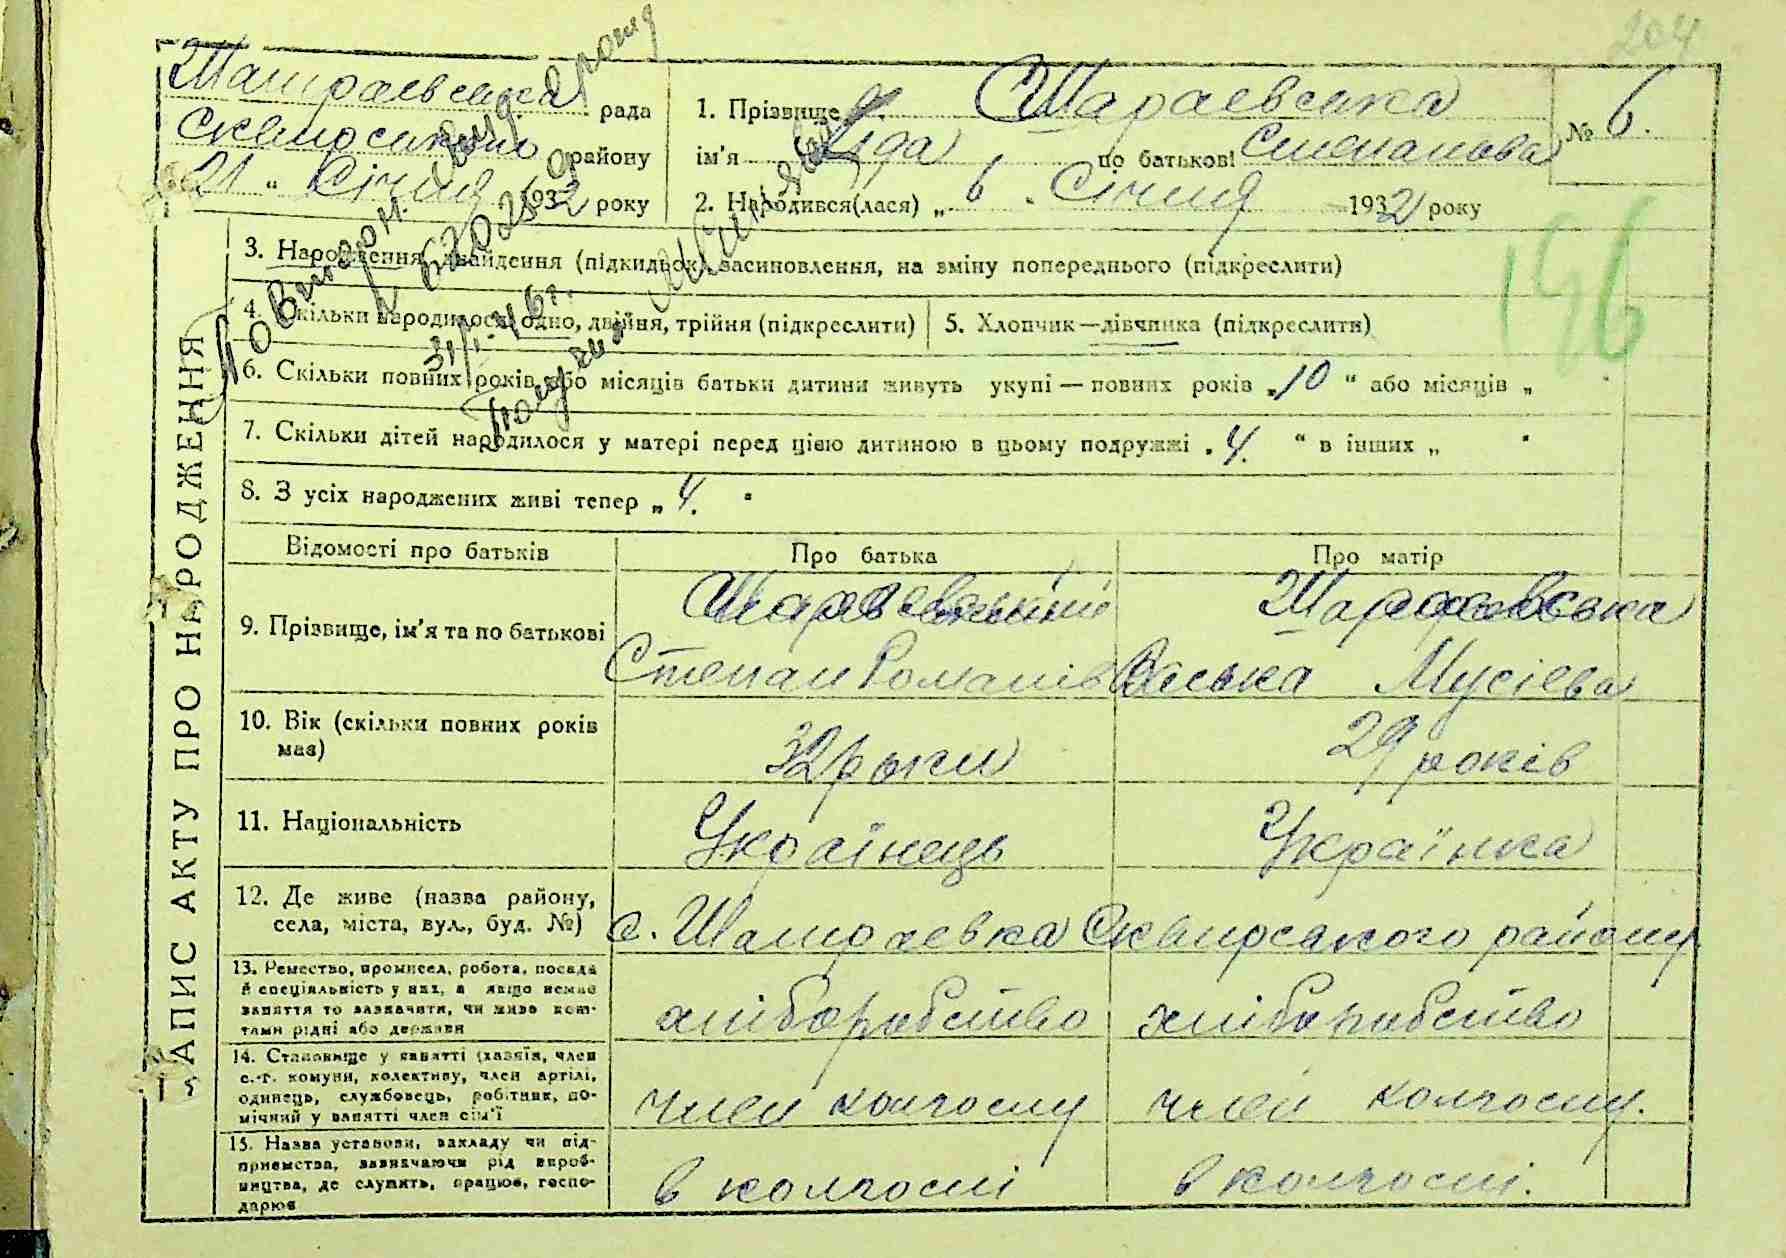 204
Шамраевська рада
Сквирського району
„21„ Січня 1932 року
1. Прізвище Шараевська
ім'я Ліда по батькові Степанова
№ 6.
2. Народився(лася) „ 6 „ Січня 1932 року
ЗАПИС АКТУ ПРО НАРОДЖЕННЯ
3. Народження, знайдення (підкидьок), засиновлення, на зміну попереднього (підкреслити)
196
4. Скільки народилося: одно, двійня, трійня (підкреслити)
5. Хлопчик—дівчинка (підкреслити)
6. Скільки повних років або місяців батьки дитини живуть укупі — повних років „10“ або місяців „
7. Скільки дітей народилося у матері перед цією дитиною в цьому подружжі „4.“ в інших „ “
8. З усіх народжених живі тепер „4.“
Повторн.
31/I-46 г.
Відомості про батьків
Про батька
Про матір
9. Прізвище, ім'я та по батькові
Шараевський
Степан Романів
Шараевська
Васька Мусіева
10. Вік (скільки повних років має)
32 роки
29 років
11. Національність
Українець
Українка
12. Де живе (назва району,
села, міста, вул., буд. №)
с. Шамраевка Сквирського району
13. Ремество, промисел, робота, посада
й спеціяльність у них, а якщо немає
заняття то зазначити, чи живе кош-
тами рідні або держави
хліборобство
хліборобство
14. Становище у занятті (хазяїн, член
с.-г. комуни, колективу, член артілі,
одинець, службовець, робітник, по-
мічний у занятті член сім'ї
член колгоспу
член колгоспу.
15. Назва установи, закладу чи під-
приємства, зазначаючи рід вироб-
ництва, де служить, працює, госпо-
дарює
в колгоспі
в колгоспі.